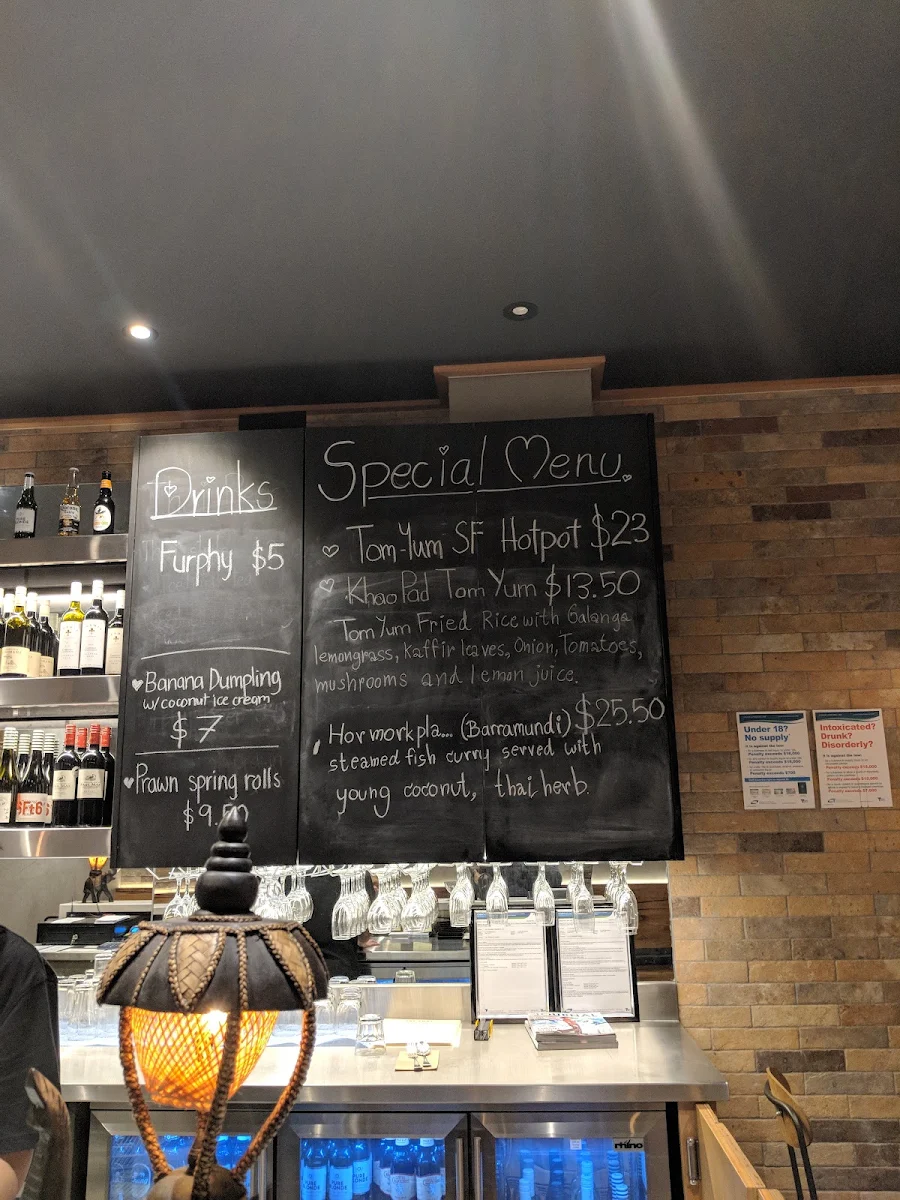 Drinks
Furphy $5
Banana Dumpling
w/ coconut ice cream
$7
Prawn spring rolls
$9.50
Special Menu
Tom-Yum SF Hotpot $23
Khao Pad Tom Yum $13.50
Tom Yum Fried Rice with Galanga
lemongrass, kaffir leaves, Onion, Tomatoes,
mushrooms and lemon juice.
Hormorkpla... (Barramundi) $25.50
steamed fish curry served with
young coconut, thai herb.
Under 18?
No supply
It is against the law:
Intoxicated?
Drunk?
Disorderly?
It is against the law:
rhino